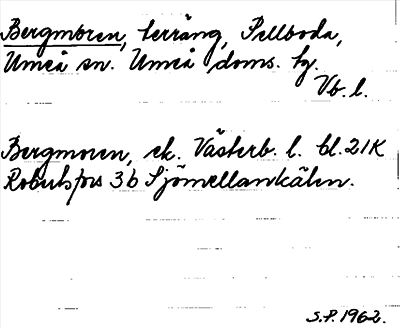 Bergmoren, terräng, Pellboda,
Umeå sn. Umeå doms. hg.
Vb. l.
Bergmoren, ek. Västerb. l. bl. 21K
Robertsfors 3b Sjömellankälen.
S.P. 1962.